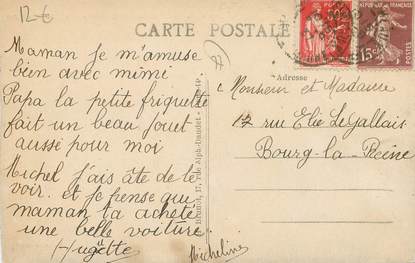 12 €
CARTE POSTALE
RÉPUBLIQUE FRANÇAISE
15c
POSTES
Maman je m'amuse
bien avec mimi
Papa la petite friquette
fait un beau jouet
aussi pour moi
Michel j'ais âte de te
voir. et je pense qui
maman ta acheté
une belle voiture.
Huguette
Micheline
Adresse
Monsieur et Madame
17 rue Elie Le Gallais
Bourg-la-Reine